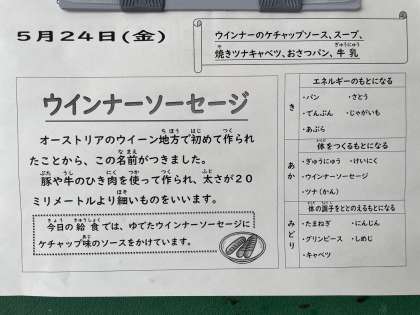 5月24日(金)
ウインナーのケチャップソース、スープ、
焼きツナキャベツ、おさつパン、牛乳
ウインナーソーセージ
オーストリアのウイーン地方で初めて作られ
たことから、この名前がつきました。
豚や牛のひき肉を使って作られ、太さが20
ミリメートルより細いものをいいます。
今日の給食では、ゆでたウインナーソーセージに
ケチャップ味のソースをかけています。
き
エネルギーのもとになる
・パン ・さとう
・でんぷん ・じゃがいも
・あぶら
あか
体をつくるもとになる
・ぎゅうにゅう ・けいにく
・ウインナーソーセージ
・ツナ(かん)
みどり
体の調子をととのえるもとになる
・たまねぎ ・にんじん
・グリンピース ・しめじ
・キャベツ